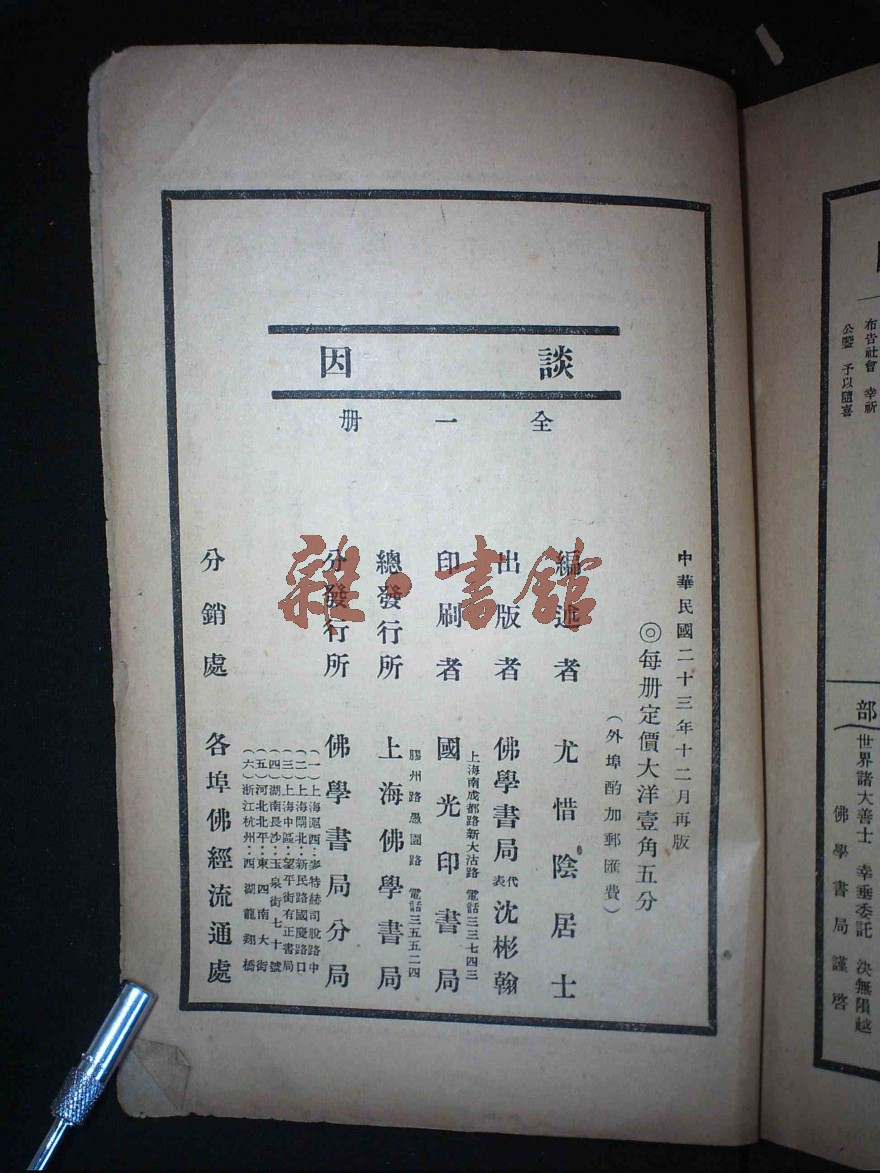 談因
全一册
中華民國二十三年十二月再版
◎每册定價大洋壹角五分
(外埠酌加郵匯費)
編述者 尤惜陰居士
出版者 佛學書局代表沈彬翰
上海南成都路新大沽路 電話三三七四三
印刷者 國光印書局
膠州路愚園路 電話三五五二四
總發行所 上海佛學書局
分發行所 佛學書局分局
(一)上海滬西:麥特赫司脫路中
(二)上海閘北:新民路國慶路口
(三)上海中區:望平街有正書局
(四)湖南長沙:玉泉街七十號
(五)河北北平:東四南大街
(六)浙江杭州:西湖龍翔橋
分銷處 各埠佛經流通處
雜·書館
布告社會 幸祈
公鑒 予以隨喜
部
世界諸大善士 幸垂委託 決無隕越
佛學書局謹啓